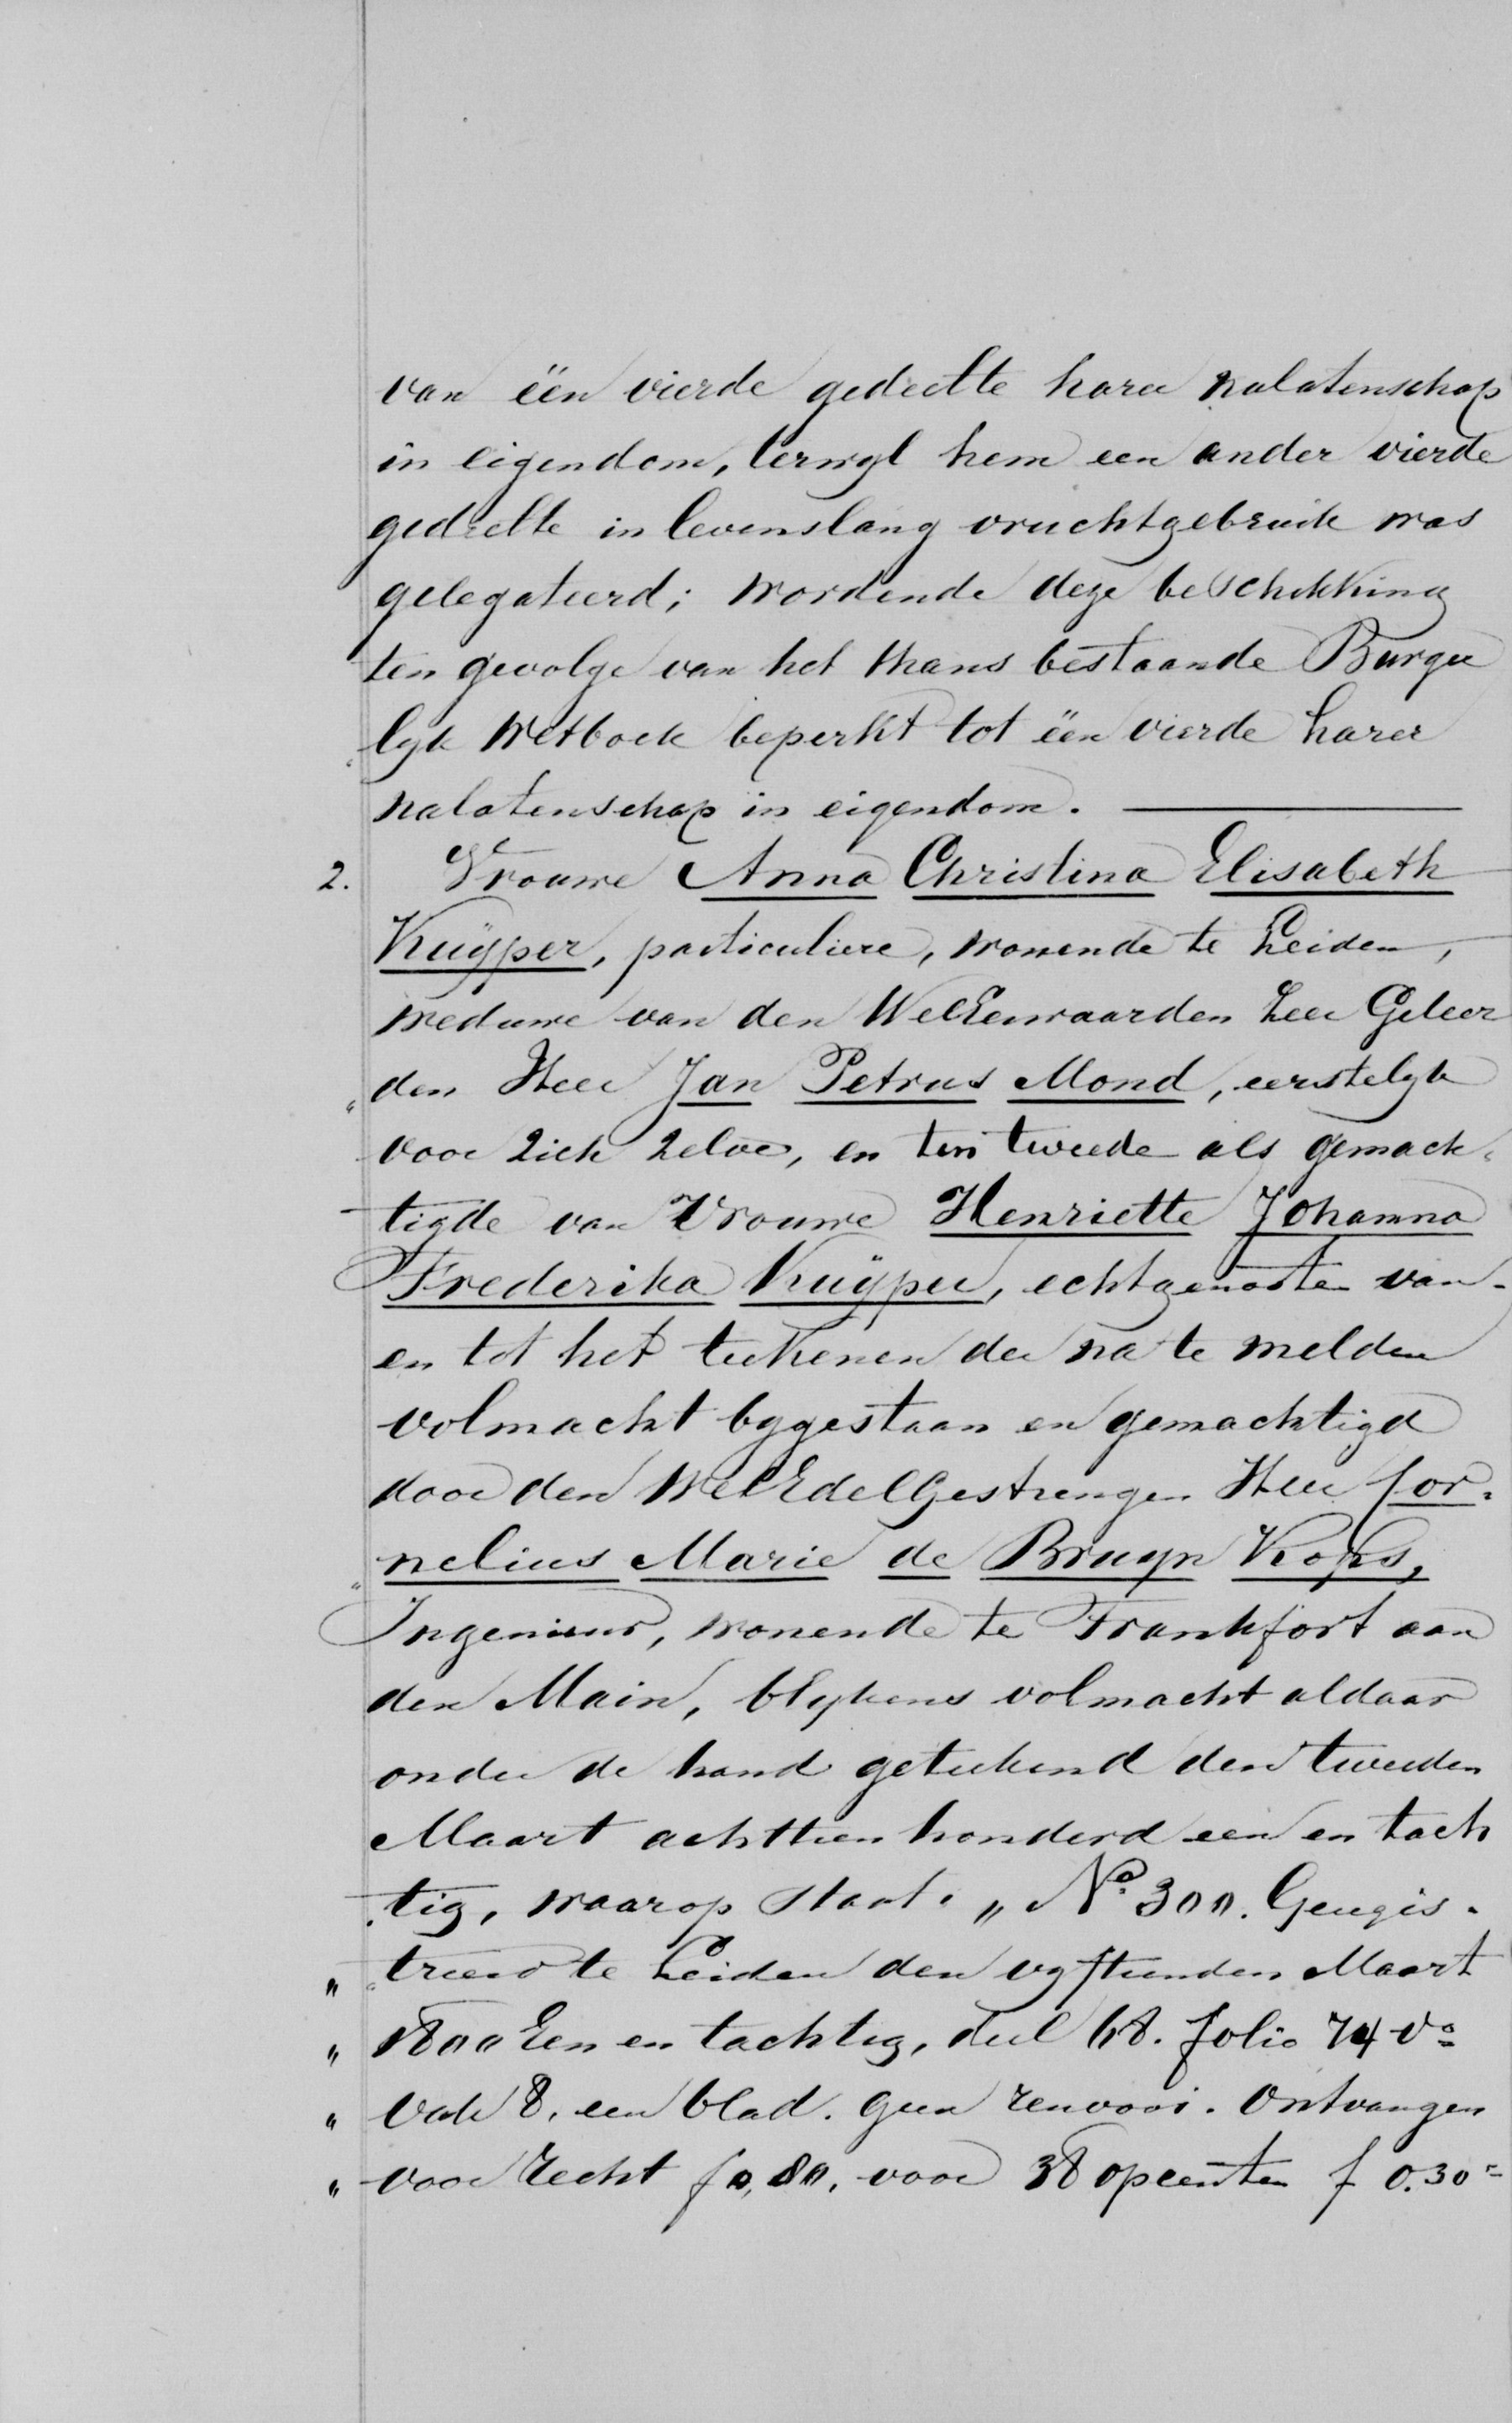 van één vierde gedeelte harer nalatenschap
in eigendom, terwyl hem een ander vierde
gedeelte in levenslang vruchtgebruik was
gelegateerd; wordende deze beschikking
ten gevolge van het thans bestaande Burger
„lyk Wetboek beperkt tot één vierde harer
nalatenschap in eigendom. ———
2. Vrouwe Anna Christina Elisabeth
Kuÿper, particuliere, wonende te Leiden,
weduwe van den WelEerwaarden Zeer Geleer
„den Heer Jan Petrus Mond, eerstelyk
voor zich zelve, en ten tweede als gemach„
tigde van Vrouwe Henriette Johanna
Frederika Kuÿper, echtgenoote van-
en tot het teekenen der na te melden
volmacht bygestaan en gemachtigd
door den WelEdelGestrengen Heer Cor„
„nelius Marie de Bruyn Kops,
Ingenieur, wonende te Frankfort aan
den Main, blykens volmacht aldaar
onder de hand geteekend den tweeden
Maart achttien honderd een en tach
„tig, waarop staat: „No. 300. Geregis„
„ „treerd te Leiden den vyftienden Maart
„ 1800 Een en tachtig, deel 68. folio 74 vo
„ vak 8, een blad. geen renvooi. Ontvangen
„ voor recht f 0,80, voor 38 opcenten f 0.30⁵